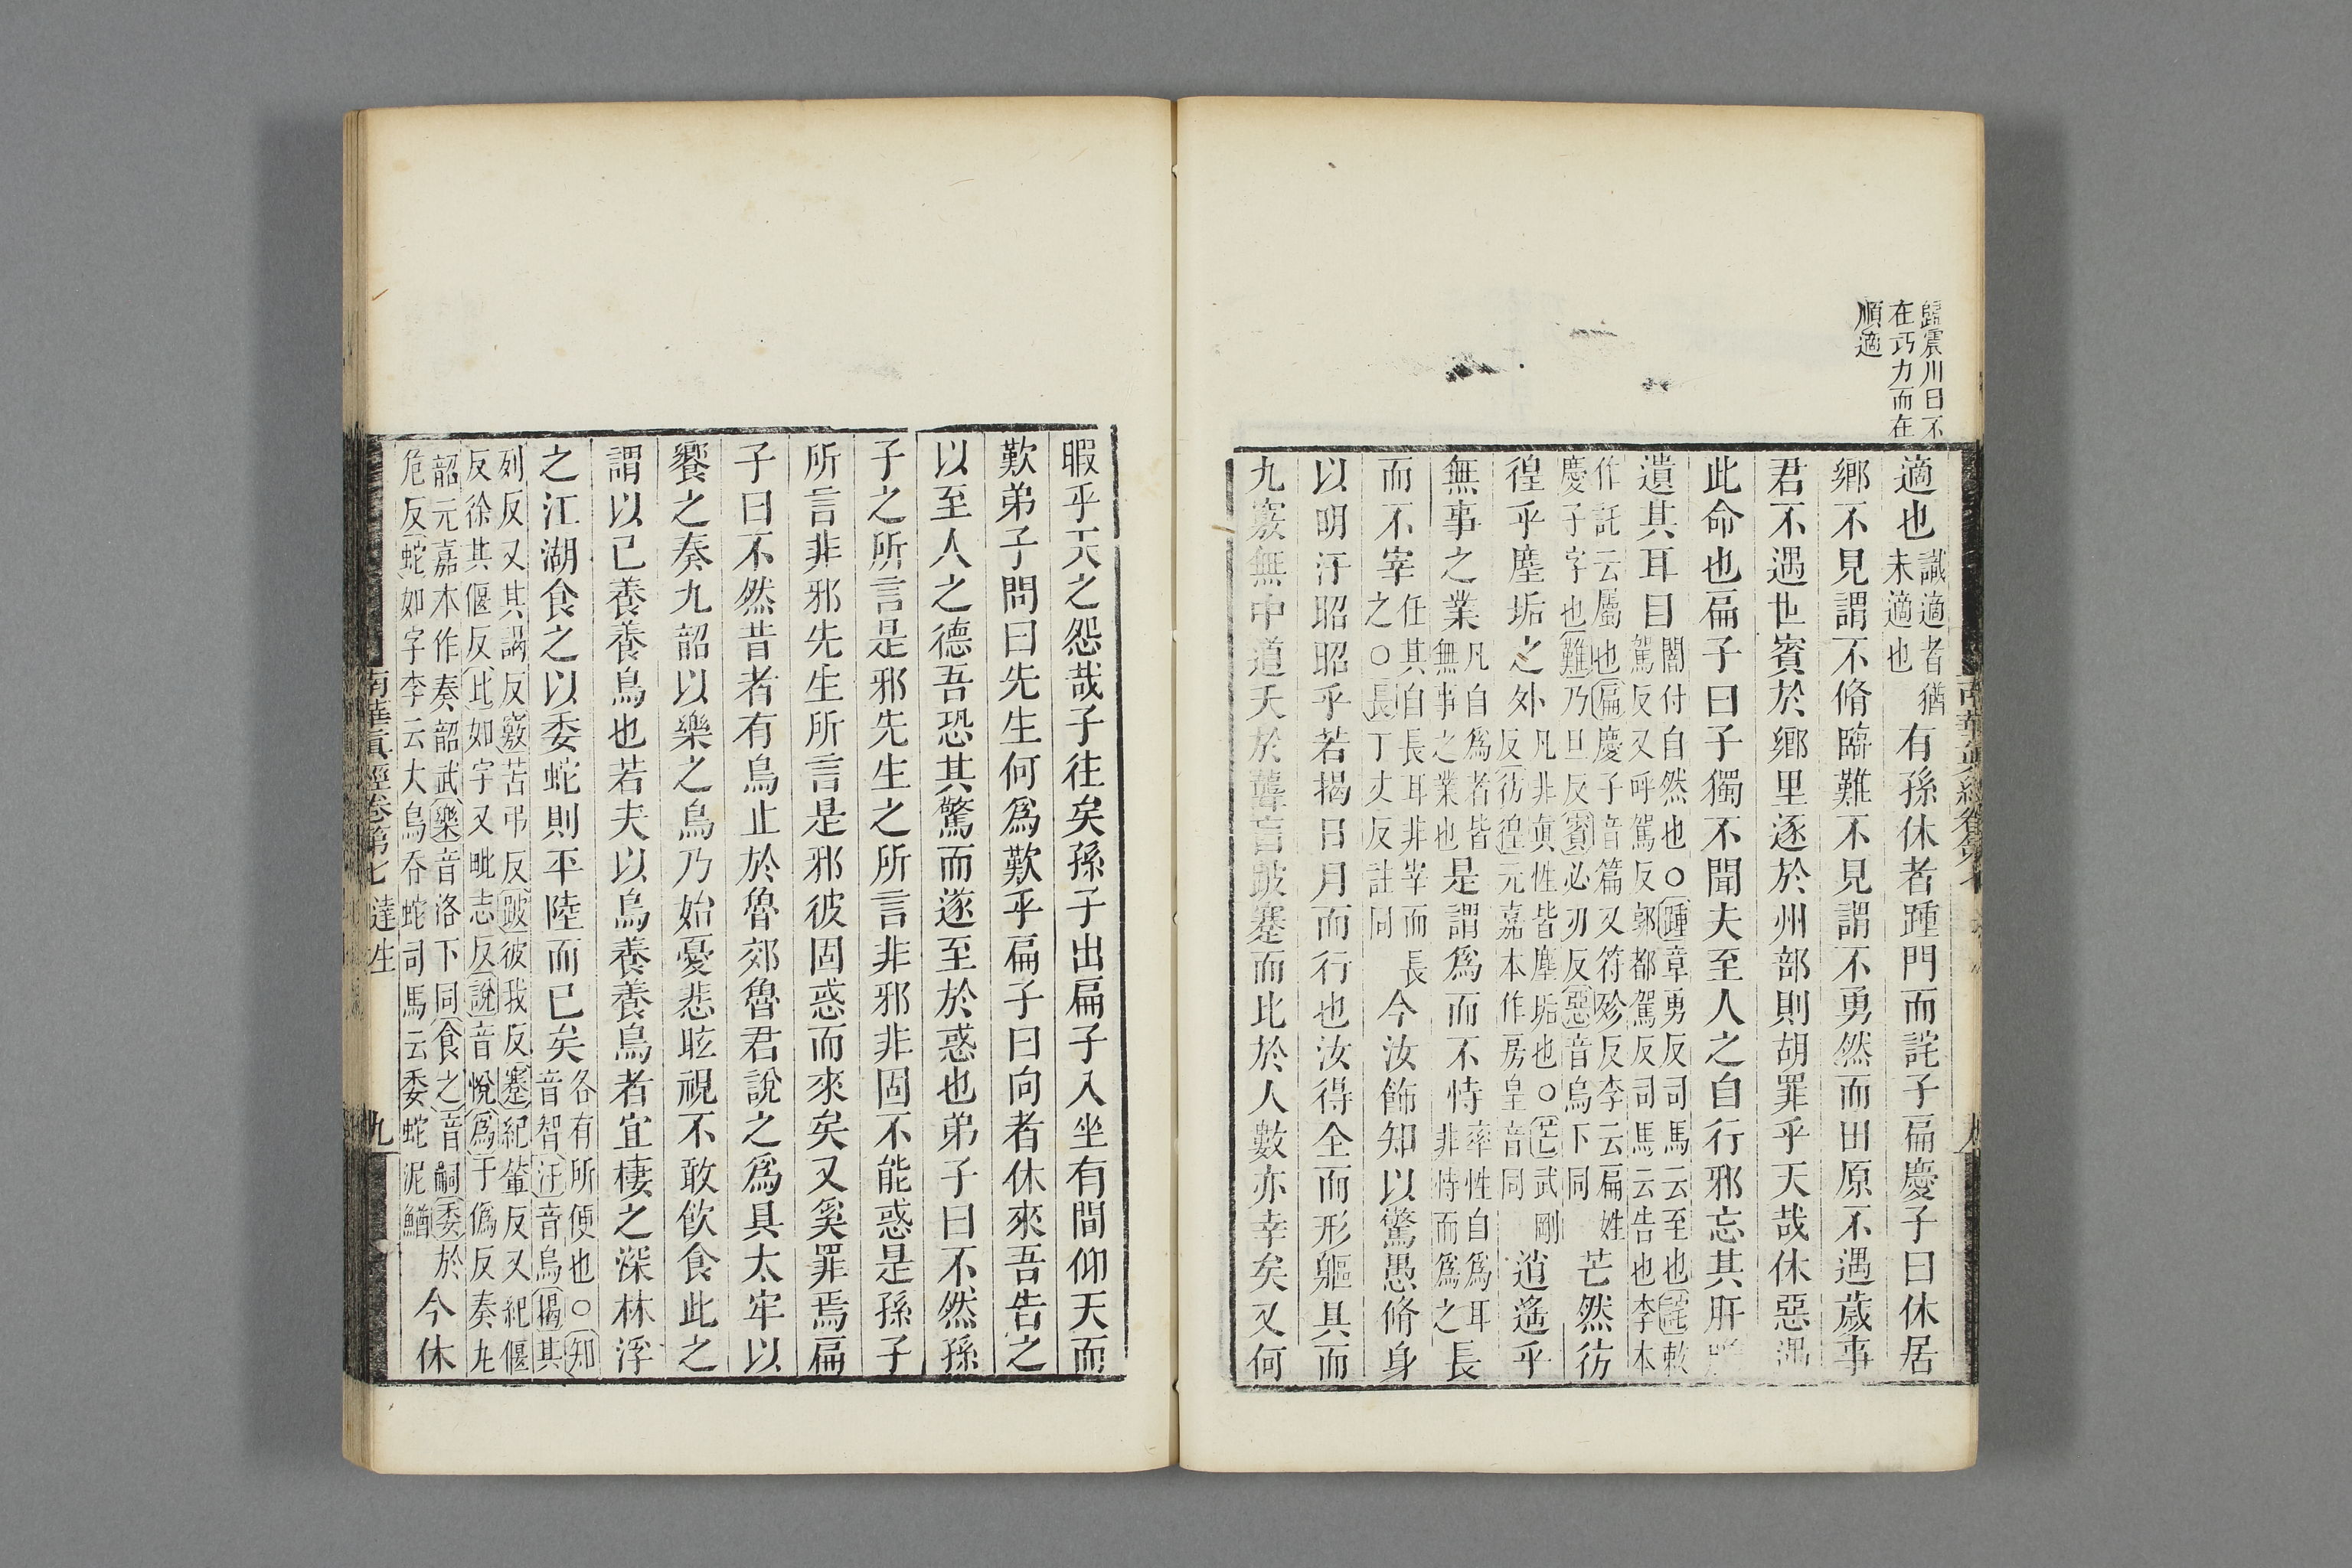 歸震川曰不
在巧力而在
順適
適也識適者猶未適也有孫休者踵門而詫子扁慶子曰休居
鄉不見謂不脩臨難不見謂不勇然而田原不遇歲事
君不遇世賓於鄉里逐於州部則胡罪乎天哉休惡遇
此命也扁子曰子獨不聞夫至人之自行邪忘其肝膽
遺其耳目闇付自然也○踵章勇反司馬云至也詫敕駕反又呼駕反郭都駕反司馬云告也李本
作託云屬也扁慶子音篇又符殄反李云扁姓慶子字也難乃旦反賓必刃反惡音烏下同芒然彷
徨乎塵垢之外凡非真性皆塵垢也○芒武剛反彷徨元嘉本作房皇音同逍遙乎
無事之業凡自爲者皆無事之業也是謂爲而不恃率性自爲耳非恃而爲之長
而不宰任其自長耳非宰而長之○長丁丈反註同今汝飾知以驚愚脩身
以明汙昭昭乎若揭日月而行也汝得全而形軀具而
九竅無中道夭於聾盲跛蹇而比於人數亦幸矣又何
暇乎天之怨哉子往矣孫子出扁子入坐有間仰天而
歎弟子問曰先生何爲歎乎扁子曰向者休來吾告之
以至人之德吾恐其驚而遂至於惑也弟子曰不然孫
子之所言是邪先生之所言非邪非固不能惑是孫子
所言非邪先生所言是邪彼固惑而來矣又奚罪焉扁
子曰不然昔者有鳥止於魯郊魯君說之爲具太牢以
饗之奏九韶以樂之鳥乃始憂悲眩視不敢飲食此之
謂以己養養鳥也若夫以鳥養養鳥者宜棲之深林浮
之江湖食之以委蛇則平陸而已矣各有所便也○知音智汙音烏揭其
列反又其謁反竅苦弔反跛彼我反蹇紀輦反又紀偃反徐其偃反比如字又毗志反說音悅爲于僞反奏九
韶元嘉本作奏韶武樂音洛下同食之音嗣委於危反蛇如字李云大鳥吞蛇司馬云委蛇泥鰌今休
南華真經卷第七 達生
九